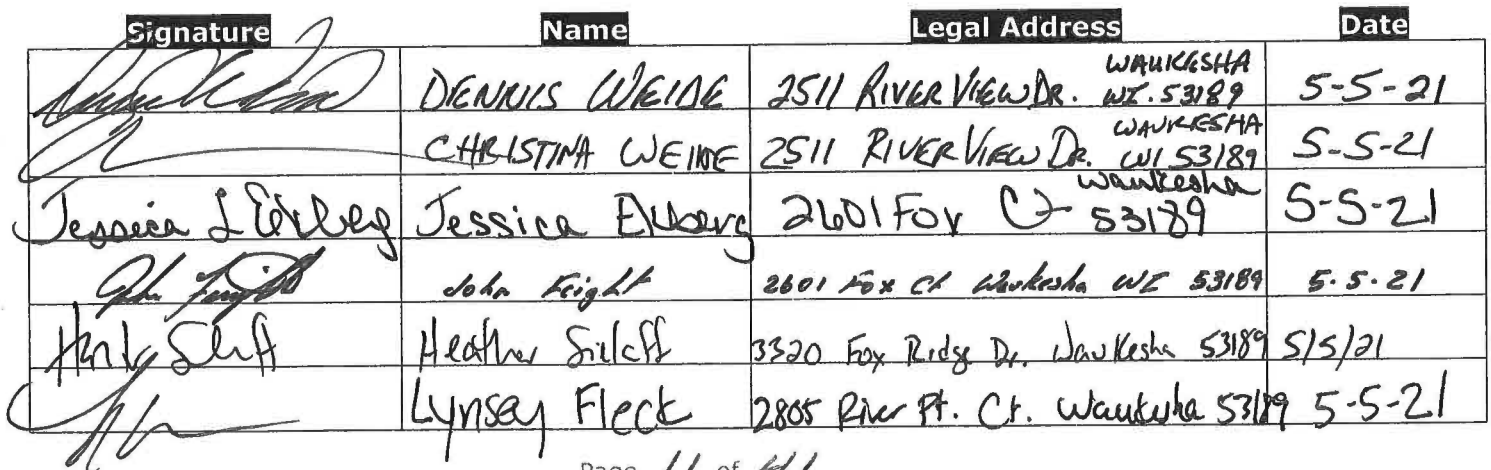 Signature Name Legal Address Date
DENNIS WEIDE 2511 RIVER VIEW DR. WAUKESHA WI. 53189 5-5-21
CHRISTINA WEIDE 2511 RIVER VIEW DR. WAUKESHA WI 53189 5-5-21
Jessica L Jessica 2601 Fox Ct Waukesha 53189 5-5-21
John Feight 2601 Fox Ct Waukesha WI 53189 5.5.21
Heather 3320 Fox Ridge Dr. Waukesha 53189 5/5/21
Lynsey Fleck 2805 River Pt. Ct. Waukesha 53189 5-5-21
Page of